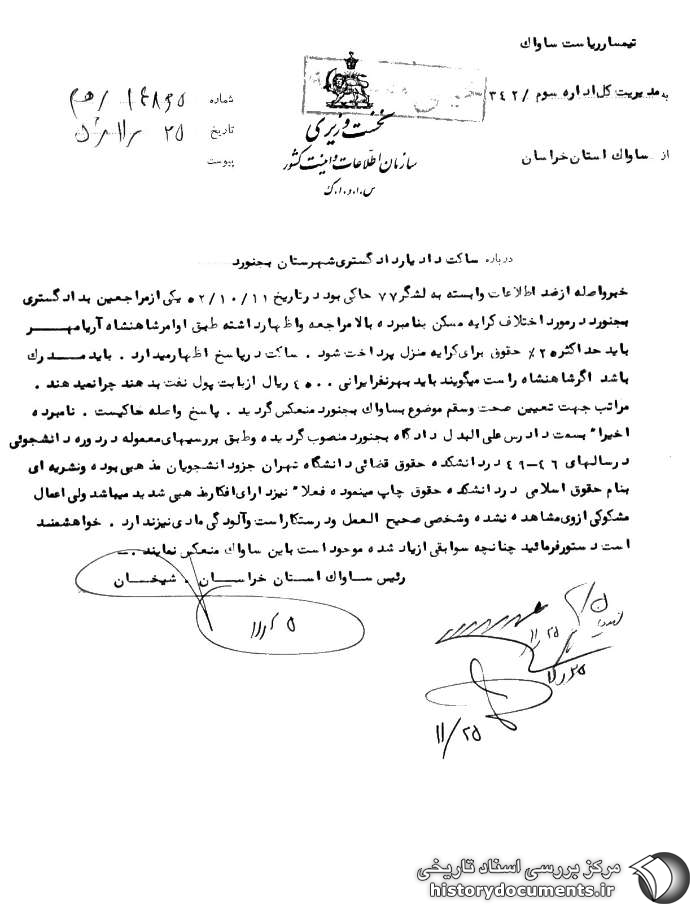 تیمسار ریاست ساواک
به مدیریت کل اداره سوم / ۳۴۲
از ساواک استان خراسان
نخست وزیری
سازمان اطلاعات و امنیت کشور
س.ا.و.ا.ک
شماره
تاریخ
پیوست
درباره ساکت دادیار دادگستری شهرستان بجنورد
خبر واصله از ضد اطلاعات وابسته به لشگر ۷۷ حاکی بود در تاریخ ۵۲/۱۰/۱۱ یکی از مراجعین بدادگستری
بجنورد در مورد اختلاف کرایه مسکن بنامبرده بالا مراجعه و اظهار داشته طبق اوامر شاهنشاه آریامهر
باید حداکثر ۲۵٪ حقوق برای کرایه منزل پرداخت شود . ساکت در پاسخ اظهار میدارد . باید مدرک
باشد اگر شاهنشاه راست میگویند باید بهر نفر ایرانی ۴۵۰۰ ریال از بابت پول نفت بدهند چرا نمیدهند .
مراتب جهت تعیین صحت و سقم موضوع بساواک بجنورد منعکس گردید . پاسخ واصله حاکیست . نامبرده
اخیراً بسمت دادرس علی البدل دادگاه بجنورد منصوب گردیده و طبق بررسیهای معموله در دوره دانشجوئی
در سالهای ۴۶-۴۹ در دانشکده حقوق قضائی دانشگاه تهران جزو دانشجویان مذهبی بوده و نشریه ای
بنام حقوق اسلامی در دانشکده حقوق چاپ مینموده فعلاً نیز دارای افکار مذهبی شدید میباشد ولی اعمال
مشکوکی از وی مشاهده نشده و شخصی صحیح العمل و درستکار است و آلودگی مادی نیز ندارد . خواهشمند
است دستور فرمائید چنانچه سوابقی از یاد شده موجود است باین ساواک منعکس نمایند .
رئیس ساواک استان خراسان . شیخان
۱۱/۲۵
مرکز بررسی اسناد تاریخی
historydocuments.ir